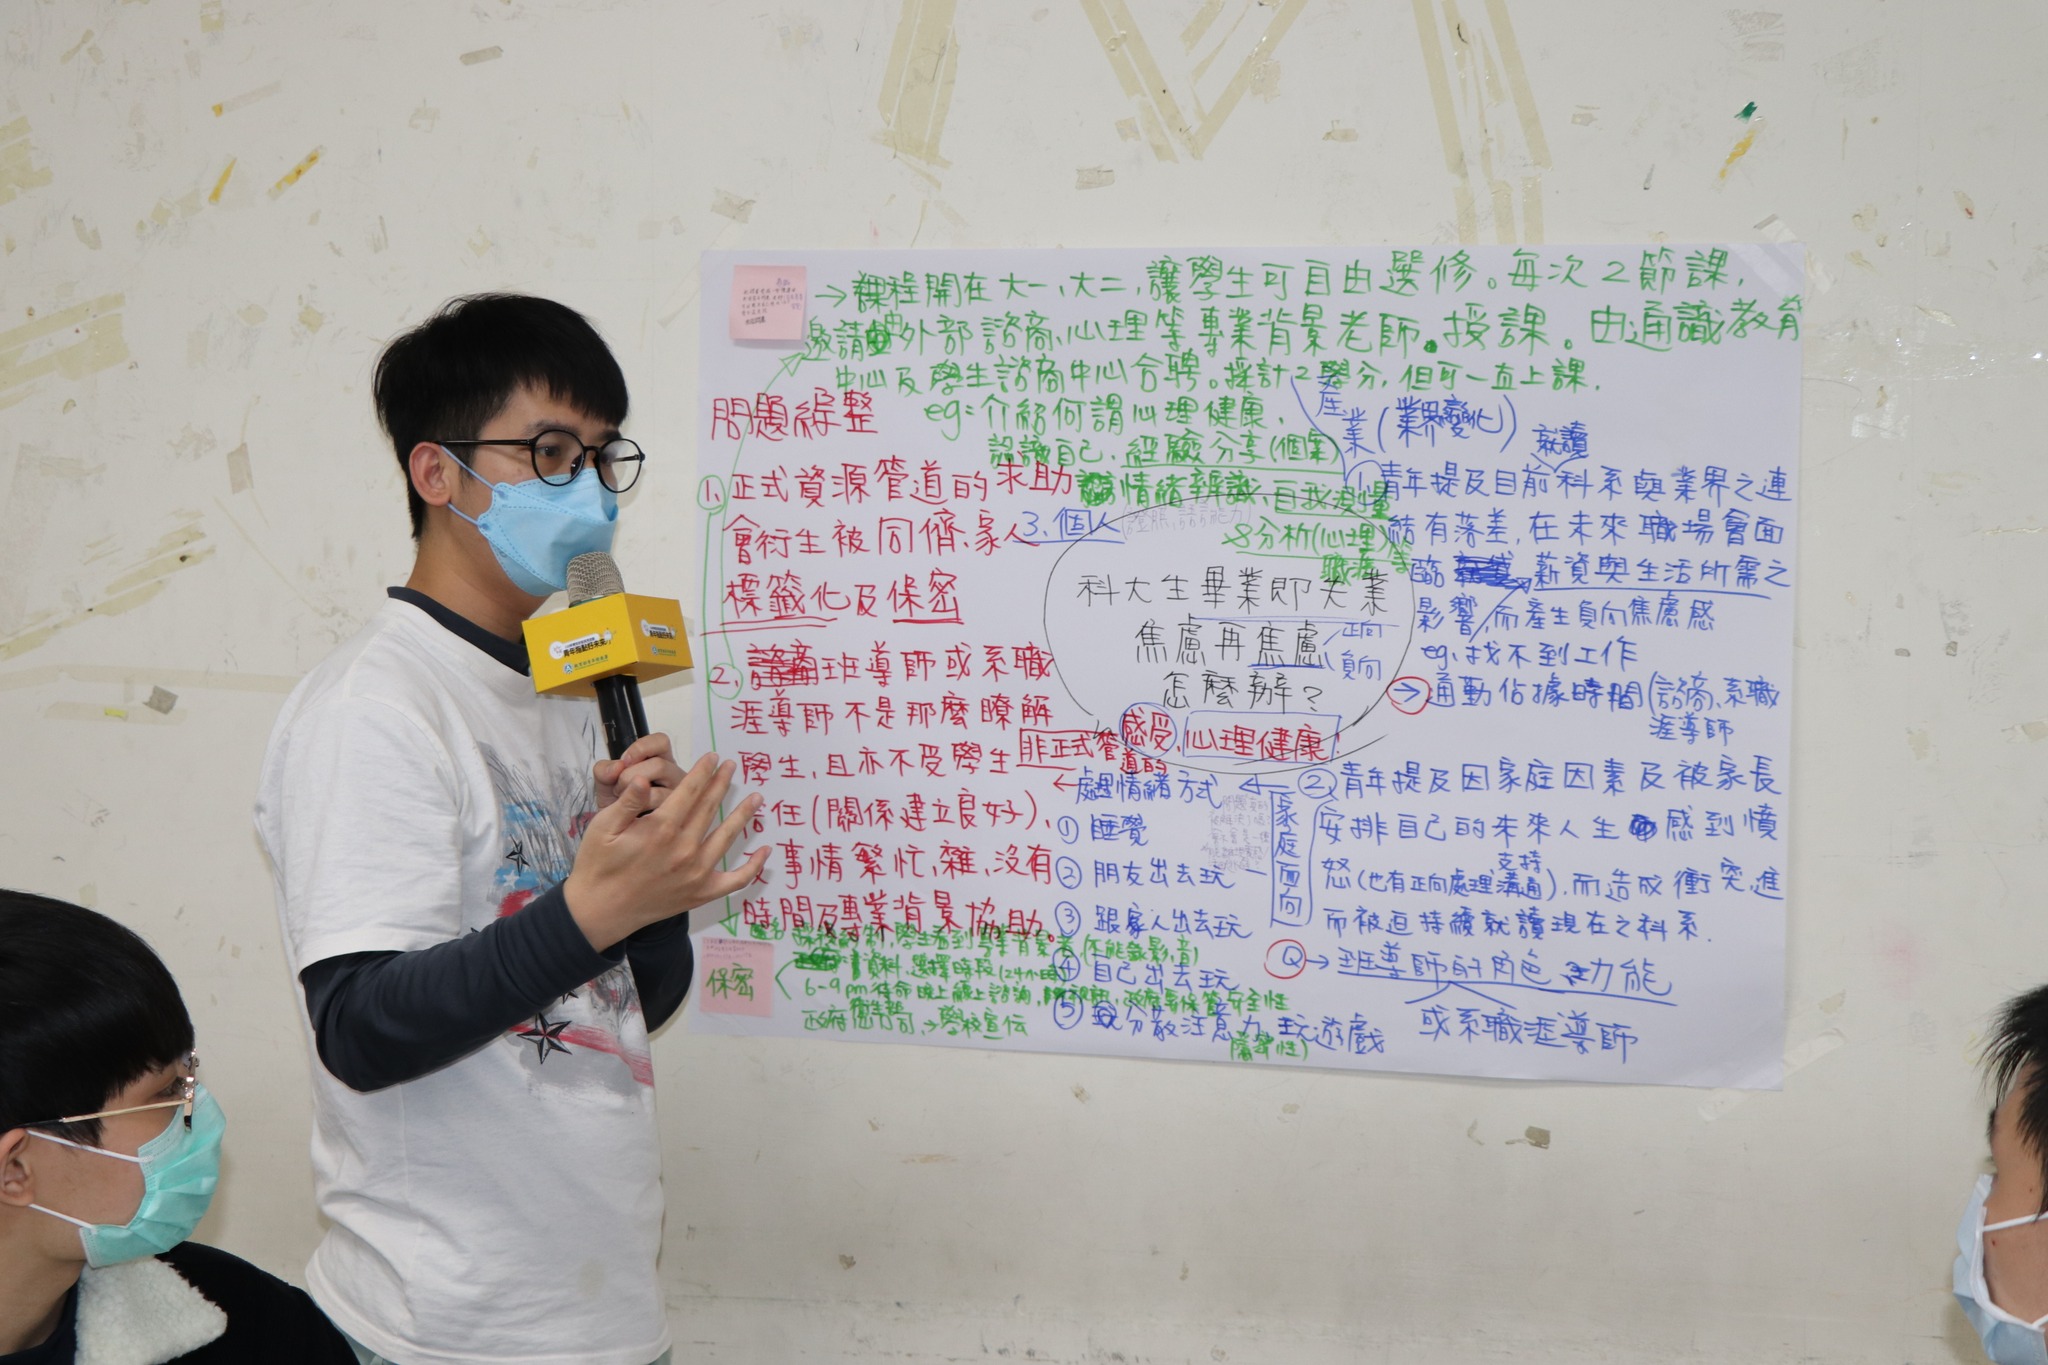 →課程開在大一、大二,讓學生可自由選修。每次2節課,
邀請外部諮商、心理等專業背景老師。授課。由通識教育
中心及學生諮商中心合聘。採計2學分,但可一直上課.
eg:介紹何謂心理健康.
認識自己.經驗分享(個案)
情緒辨識.自我
分析(心理)
職涯
問題綜整
1. 正式資源管道的求助
會衍生被同儕、家人
標籤化及保密
2. 班導師或系職
涯導師不是那麼瞭解
學生,且亦不受學生
信任(關係建立良好)、
事情繁忙,雜,沒有
時間及專業背景協助。
保密
6-9pm
政府 → 學校宣传
3.個人
科大生畢業即失業
焦慮再焦慮
正向
負向
怎麼辦?
感受、心理健康
非正式管道的
←處理情緒方式
① 睡覺
② 朋友出去玩
③ 跟家人出去玩
④ 自己出去玩
⑤ 分散注意力,玩遊戲
產業(業界變化)
就讀
1. 青年提及目前科系與業界之連
結有落差,在未來職場會面
臨 薪資與生活所需之
影響,而產生負向焦慮感
eg.找不到工作
→通勤佔據時間(諮商、系職
涯導師
家庭面向
② 青年提及因家庭因素及被家長
安排自己的未來人生 感到憤
支持
怒(也有正向處理,溝通),而造成衝突,進
而被迫持續就讀現在之科系.
Q→班導師的角色 功能
或系職涯導師
青年指點好未來